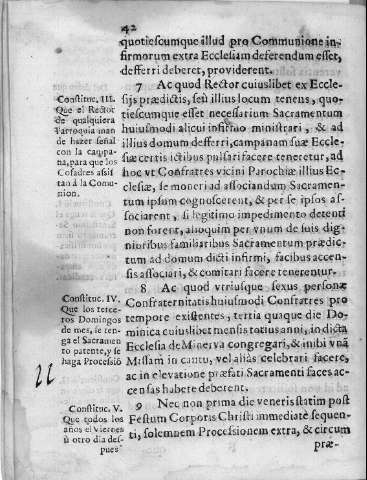 42
quotiescumque illud pro Communione in-
firmorum extra Ecclesiam deferendum esset,
defferri deberet, providerent.
7 Ac quod Rector cuiuslibet ex Eccle-
sijs prædictis, seù illius locum tenens, quo-
tiescumque esset necessarium Sacramentum
huiusmodi alicui infirmo ministrari, & ad
illius domum defferri, campanam suæ Eccle-
siæ certis ictibus pulsari facere teneretur, ad
hoc vt Confratres vicini Parochiæ illius Ec-
clesiæ, se moneri ad associandum Sacramen-
tum ipsum cognoscerent, & per se ipsos as-
sociarent, si legitimo impedimento detenti
non forent, alioquim per vnum de suis dig-
nioribus familiaribus Sacramentum prædic-
tum ad domum dicti infirmi, facibus accen-
sis associari, & comitari facere tenerentur.
8 Ac quod vtriusque sexus personæ
Confraternitatis huiusmodi Confratres pro
tempore existentes, tertia quaque die Do-
minica cuiuslibet mensis totius anni, in dicta
Ecclesia de Minerva congregari, & inibi vnã
Missam in cantu, vel alias celebrari facere,
ac in elevatione præfati Sacramenti faces ac-
censas habere deberent.
9 Nec non prima die veneris statim post
Festum Corporis Christi immediatè sequen-
ti, solemnem Processionem extra, & circum
præ-
Constituc. III.
Que el Rector
de qualquiera
Parroquia man
de hazer señal
con la cãpa-
na, para que los
Cofadres assis
tan à la Comu-
nion.
Constituc. IV.
Que los terce-
ros Domingos
de mes, se ten-
ga el Sacramen
to patente, y se
haga Processió
22
Constituc. V.
Que todos los
años el Viernes
ù otro dia des-
pues